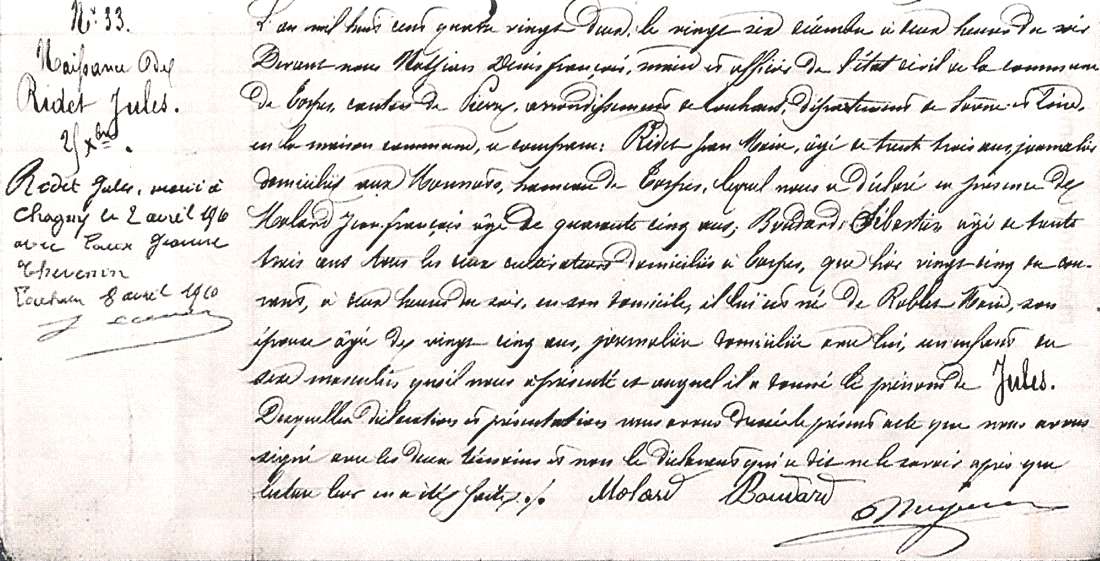 N° 33.
Naissance de
Ridet Jules.
25 Xbre.
Ridet Jules, marié à
Chagny le 2 avril 1910
avec Jeanne
Thevenin
Louhans 8 avril 1910
L'an mil huit cent quatre vingt deux, le vingt six décembre à deux heures du soir
Devant nous Denis françois, maire et officier de l'état civil de la commune
de Torpes, canton de Pierre, arrondissement de Louhans, département de Saône et Loire,
en la maison commune, a comparu: Ridet Jean Marie, âgé de trente trois ans, journalier
domicilié aux hameau de Torpes, lequel nous a déclaré en présence de
Molard Jean françois âgé de quarante cinq ans, Boudard âgé de trente
trois ans tous les deux cultivateurs domiciliés à Torpes, que hier vingt cinq du cou-
rant, à deux heures du soir, en son domicile, il lui est né de Roblet Marie, son
épouse âgée de vingt cinq ans, journalière domiciliée avec lui, un enfant du
sexe masculin qu'il nous a présenté et auquel il a donné le prénom de Jules.
Desquelles déclaration et présentation nous avons dressé le présent acte que nous avons
signé avec les deux témoins et non le déclarant qui a dit ne le savoir après que
lecture leur en a été faite./. Molard Boudard